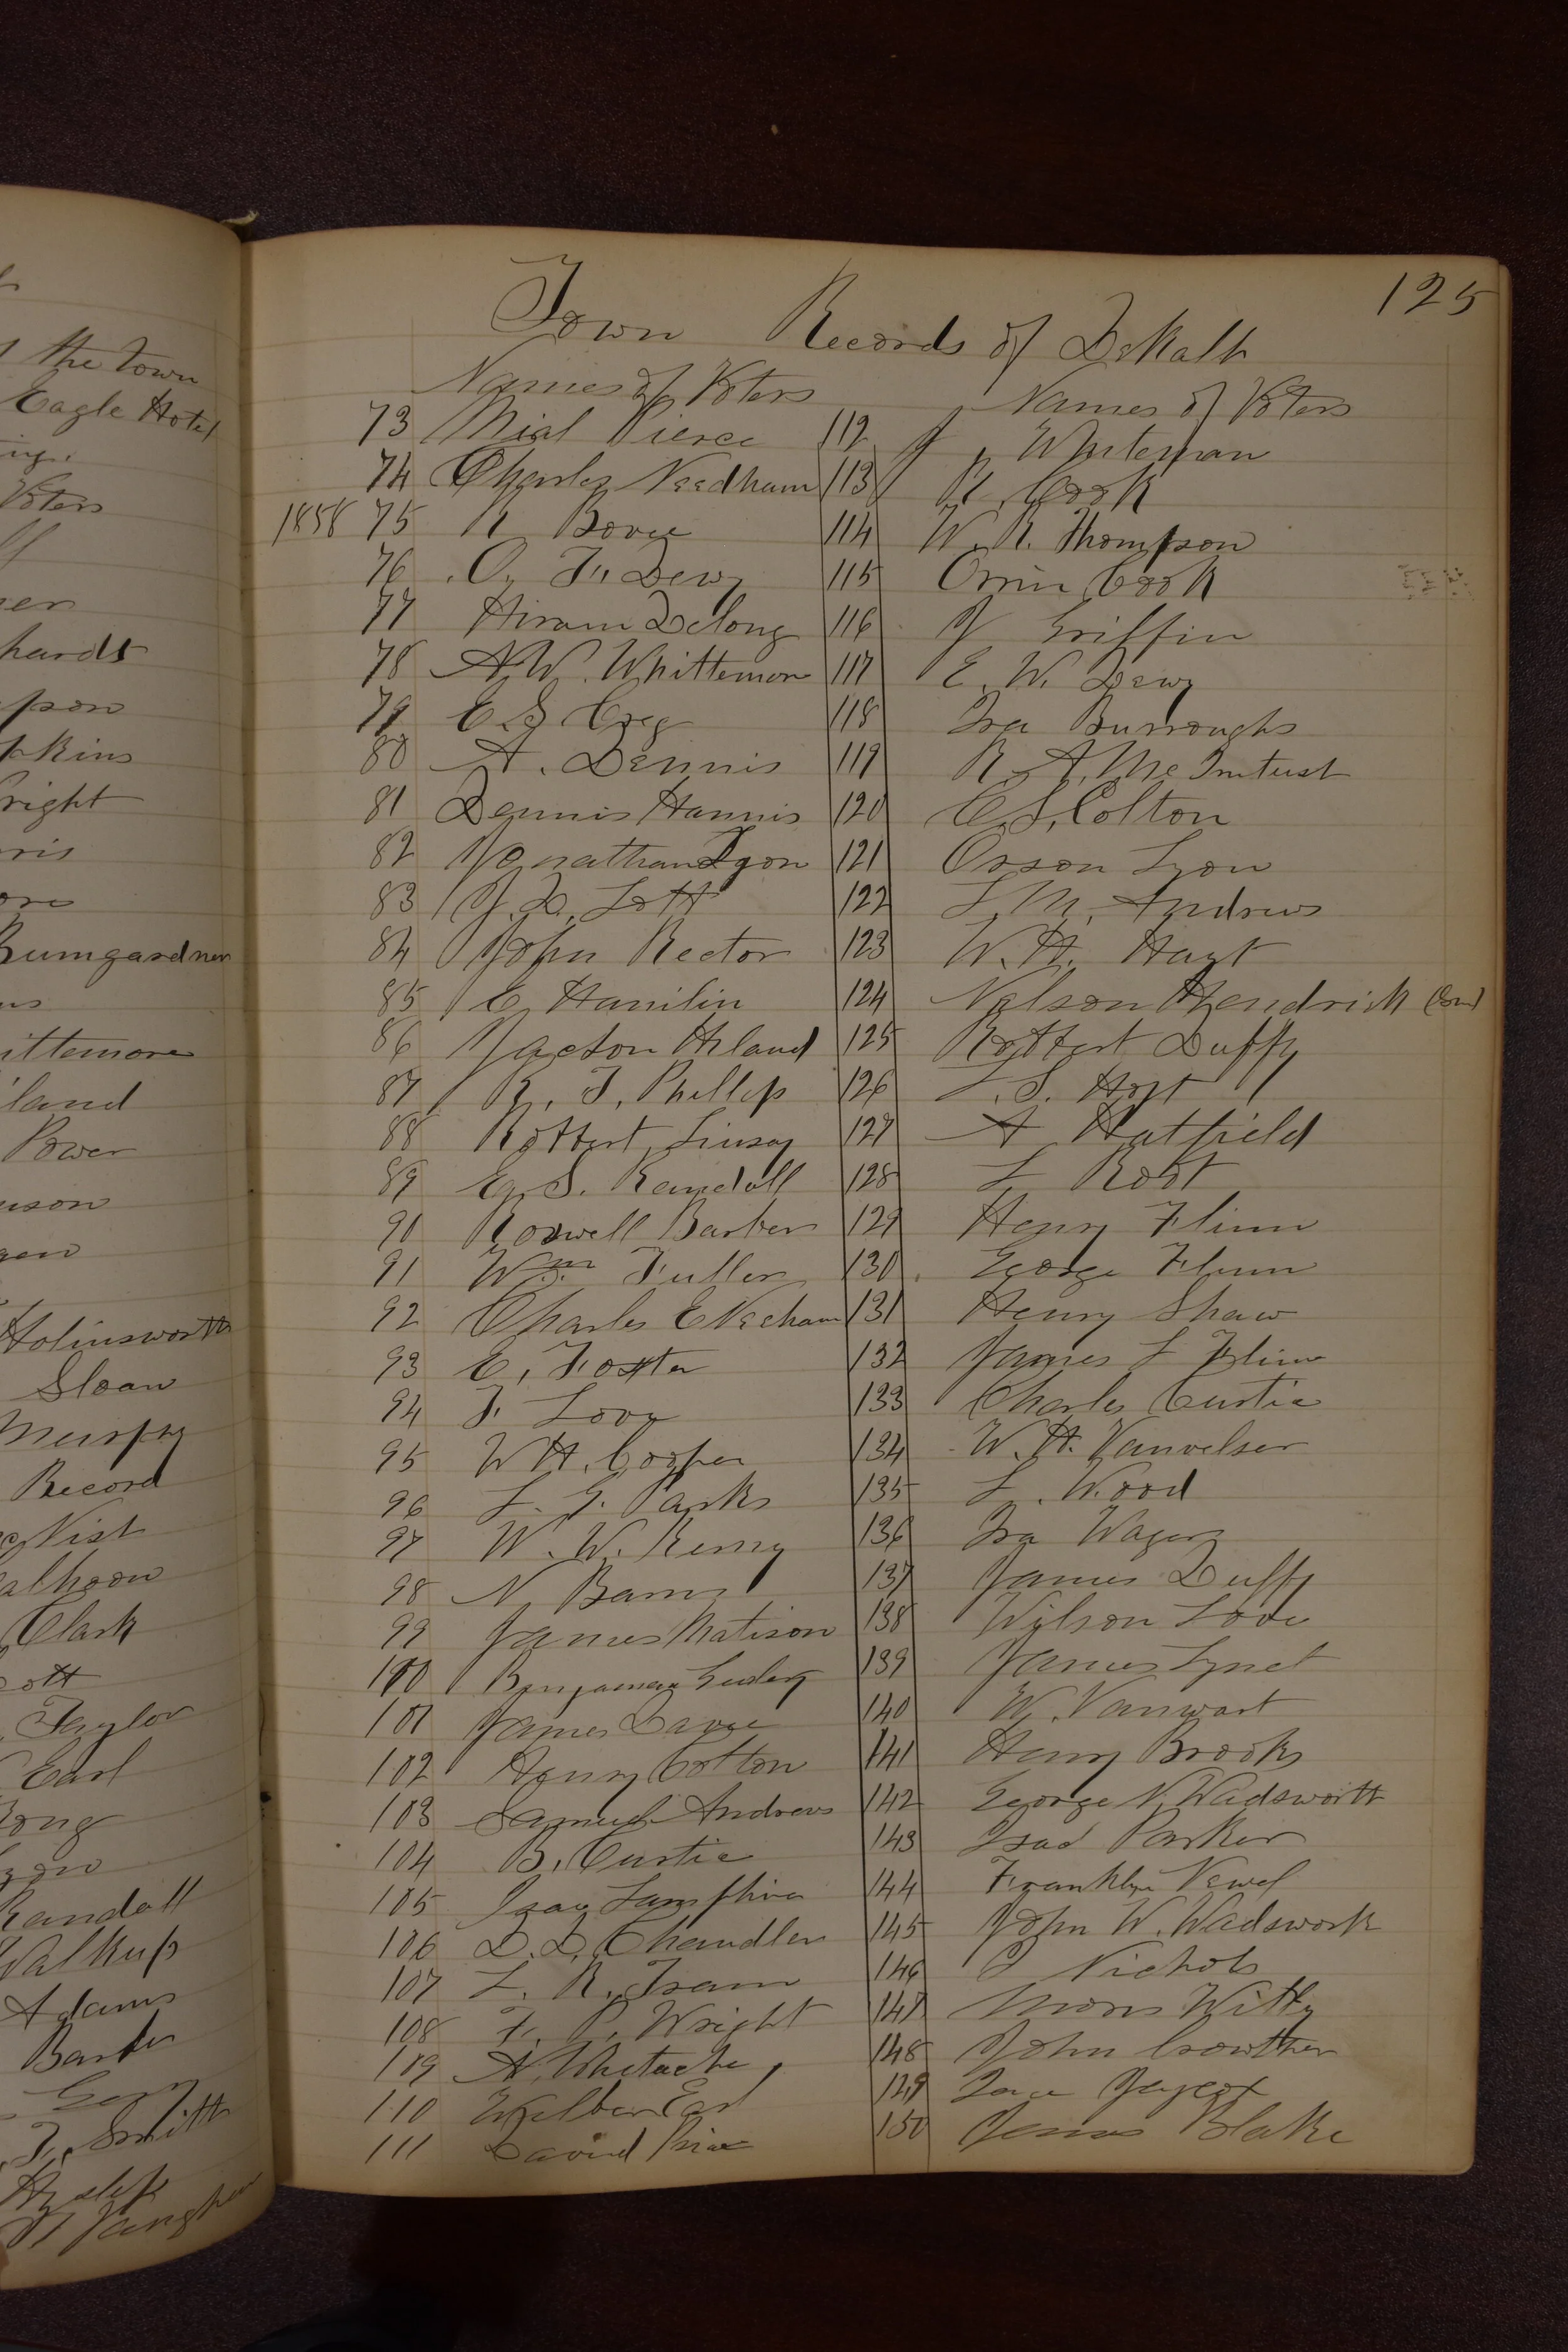 the Town
Eagle Hotel
Voters
hards
pson
pkins
right
ris
ore
Bumgardner
ittemore
iland
Power
uson
Holinsworth
Sloan
Murphy
Record
cNist
alhoon
Clark
cott
Taylor
Earl
Long
Randall
Walkup
Adams
Barber
Gory
T. Smith
Hyslip
125
Town Records of DeKalb
Names of Voters
73 Nial Pierce
74 Charles Needham
1858 75 R Bovee
76 O, F, Dewy
77 Hiram Delong
78 A W. Whittemore
79 E S Greg
80 A. Dennis
81 Dennis Hannis
82 Jonathan Lyon
83 J. D. Lott
84 John Rector
85 E Hamilin
86 Jacson Hiland
87 R. T, Phillip
88 Robbert Linsay
89 E, S. Randall
90 Roswell Barber
91 Wm. Fuller
92 Charles E Necham
93 E, Foster
94 F. Love
95 W H. Cooper
96 L. G. Parks
97 W. W. Remy
98 N Barns
99 James Matison
100 Benjaman
101 James Davie
102 Henry Cotton
103 Samuel Andrews
104 B, Curtis
105 Isaac Lamphire
106 D. D, Chandler
107 L. R. Tram
108 F. P. Wright
109 A, Whitache,
110 Wilber Earl
111 David Price
Names of Voters
112 J Whiteman
113 R. Cook
114 W. R. Thompson
115 Orrin Cook
116 J Griffin
117 E. W. Dewy
118 Ira Burroughs
119 R. A. Mc Intust
120 C. S, Colton
121 Orson Lyon
122 L M. Andrews
123 W. H. Hayt
124 Nelson Hendrick
125 Robbert Duffy
126 L. S. Hoyt
127 A Hatfield
128 L Root
129 Henry Flinn
130 George Flinn
131 Henry Shaw
132 James L Flinn
133 Charles Curtis
134 W. H. Vanvelser
135 L. Wood
136 Ira Wagery
137 James Duffy
138 Wilson Love
139 James Lynct
140 W. Vanwart
141 Henry Brooks
142 George N. Wadsworth
143 Isac Parker
144 Franklyn Newel
145 John W. Wadswork
146 J Nichols
147 Moris Witty
148 John Crowther
129 Jaycox
150 James Blake